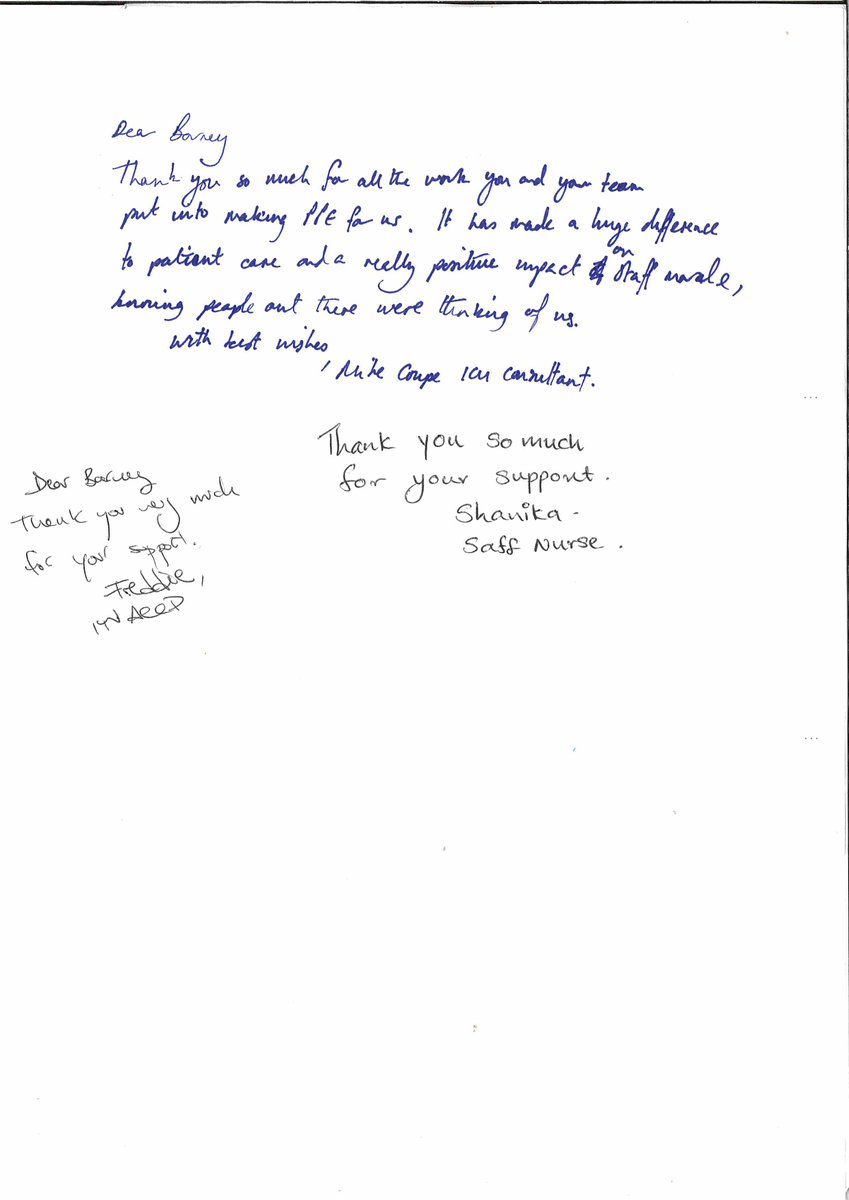 Dear Barney
Thank you so much for all the work you and your team
put into making PPE for us. It has made a huge difference
to patient care and a really positive impact on staff morale,
knowing people out there were thinking of us.
with best wishes
Mike Coupe ICU Consultant.
Thank you so much
for your support.
Shanika -
Saff Nurse.
Dear Barney
Thank you very much
for your support.
Freddie,